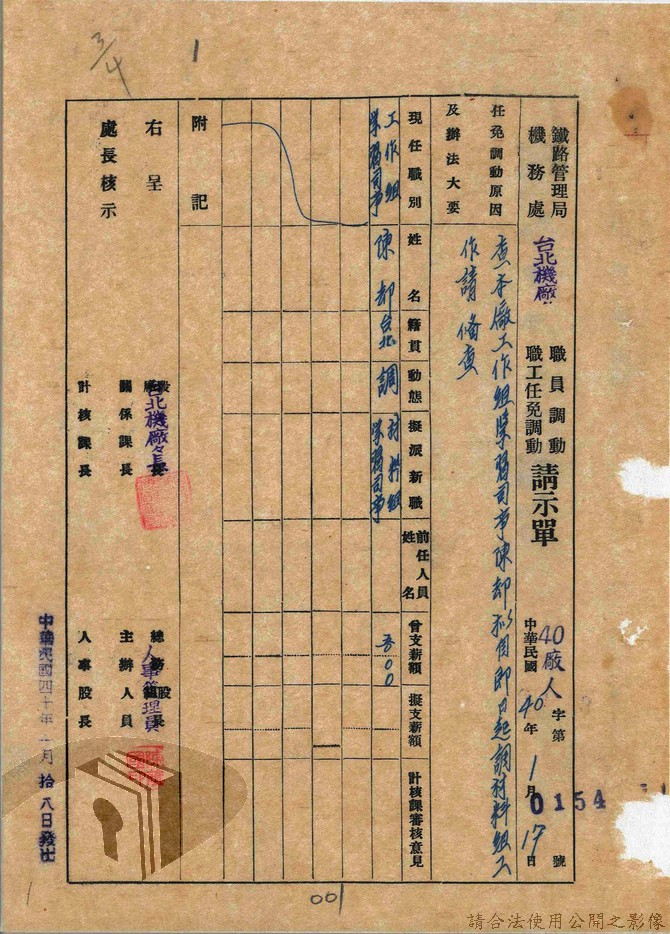 3/4
1
鐵路管理局
機務處
台北機廠
職員調動
職工任免調動
請示單
40廠人字第0154號
中華民國40年1月17日
任免調動原因
及辦法大要
查本廠工作組學習司事陳却擬自即日起調材料組工
作請備查
現任職別
姓名
籍貫
動態
擬派新職
前任人員
姓名
曾支薪額
擬支薪額
計核課審核意見
工作組
學習司事
陳却
台北
調
材料組
學習司事
附記
右呈
處長核示
台北機廠廠長
關係課長
計核課長
總務股長
人事管理員
主辦人員
人事股長
中華民國四十年一月拾八日發出
001
1
請合法使用公開之影像